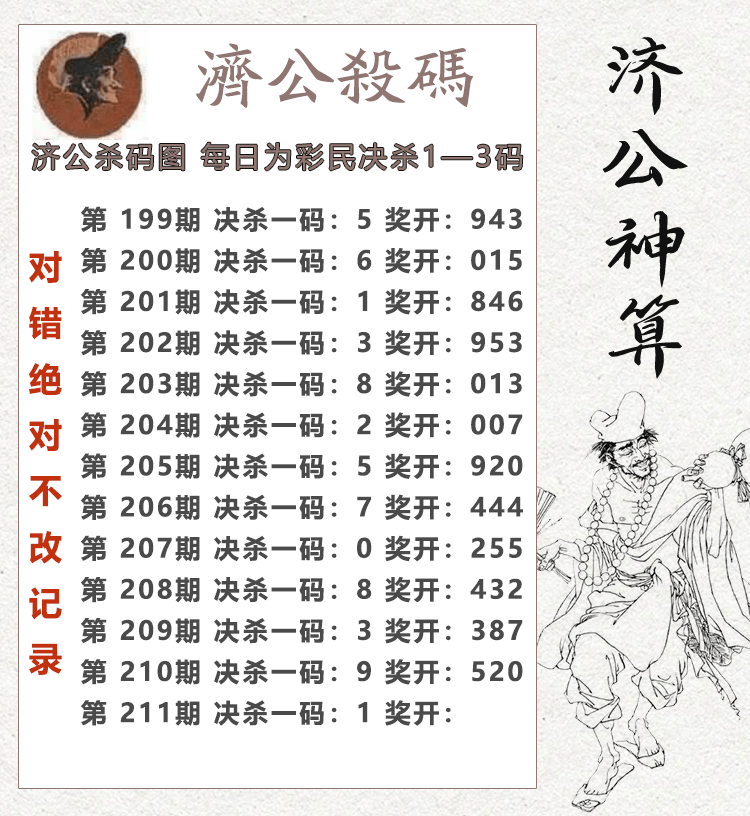 濟公殺碼
济公杀码图 每日为彩民决杀1—3码
第 199期 决杀一码：5 奖开：943
第 200期 决杀一码：6 奖开：015
第 201期 决杀一码：1 奖开：846
第 202期 决杀一码：3 奖开：953
第 203期 决杀一码：8 奖开：013
第 204期 决杀一码：2 奖开：007
第 205期 决杀一码：5 奖开：920
第 206期 决杀一码：7 奖开：444
第 207期 决杀一码：0 奖开：255
第 208期 决杀一码：8 奖开：432
第 209期 决杀一码：3 奖开：387
第 210期 决杀一码：9 奖开：520
第 211期 决杀一码：1 奖开：
对错绝对不改记录
济公神算